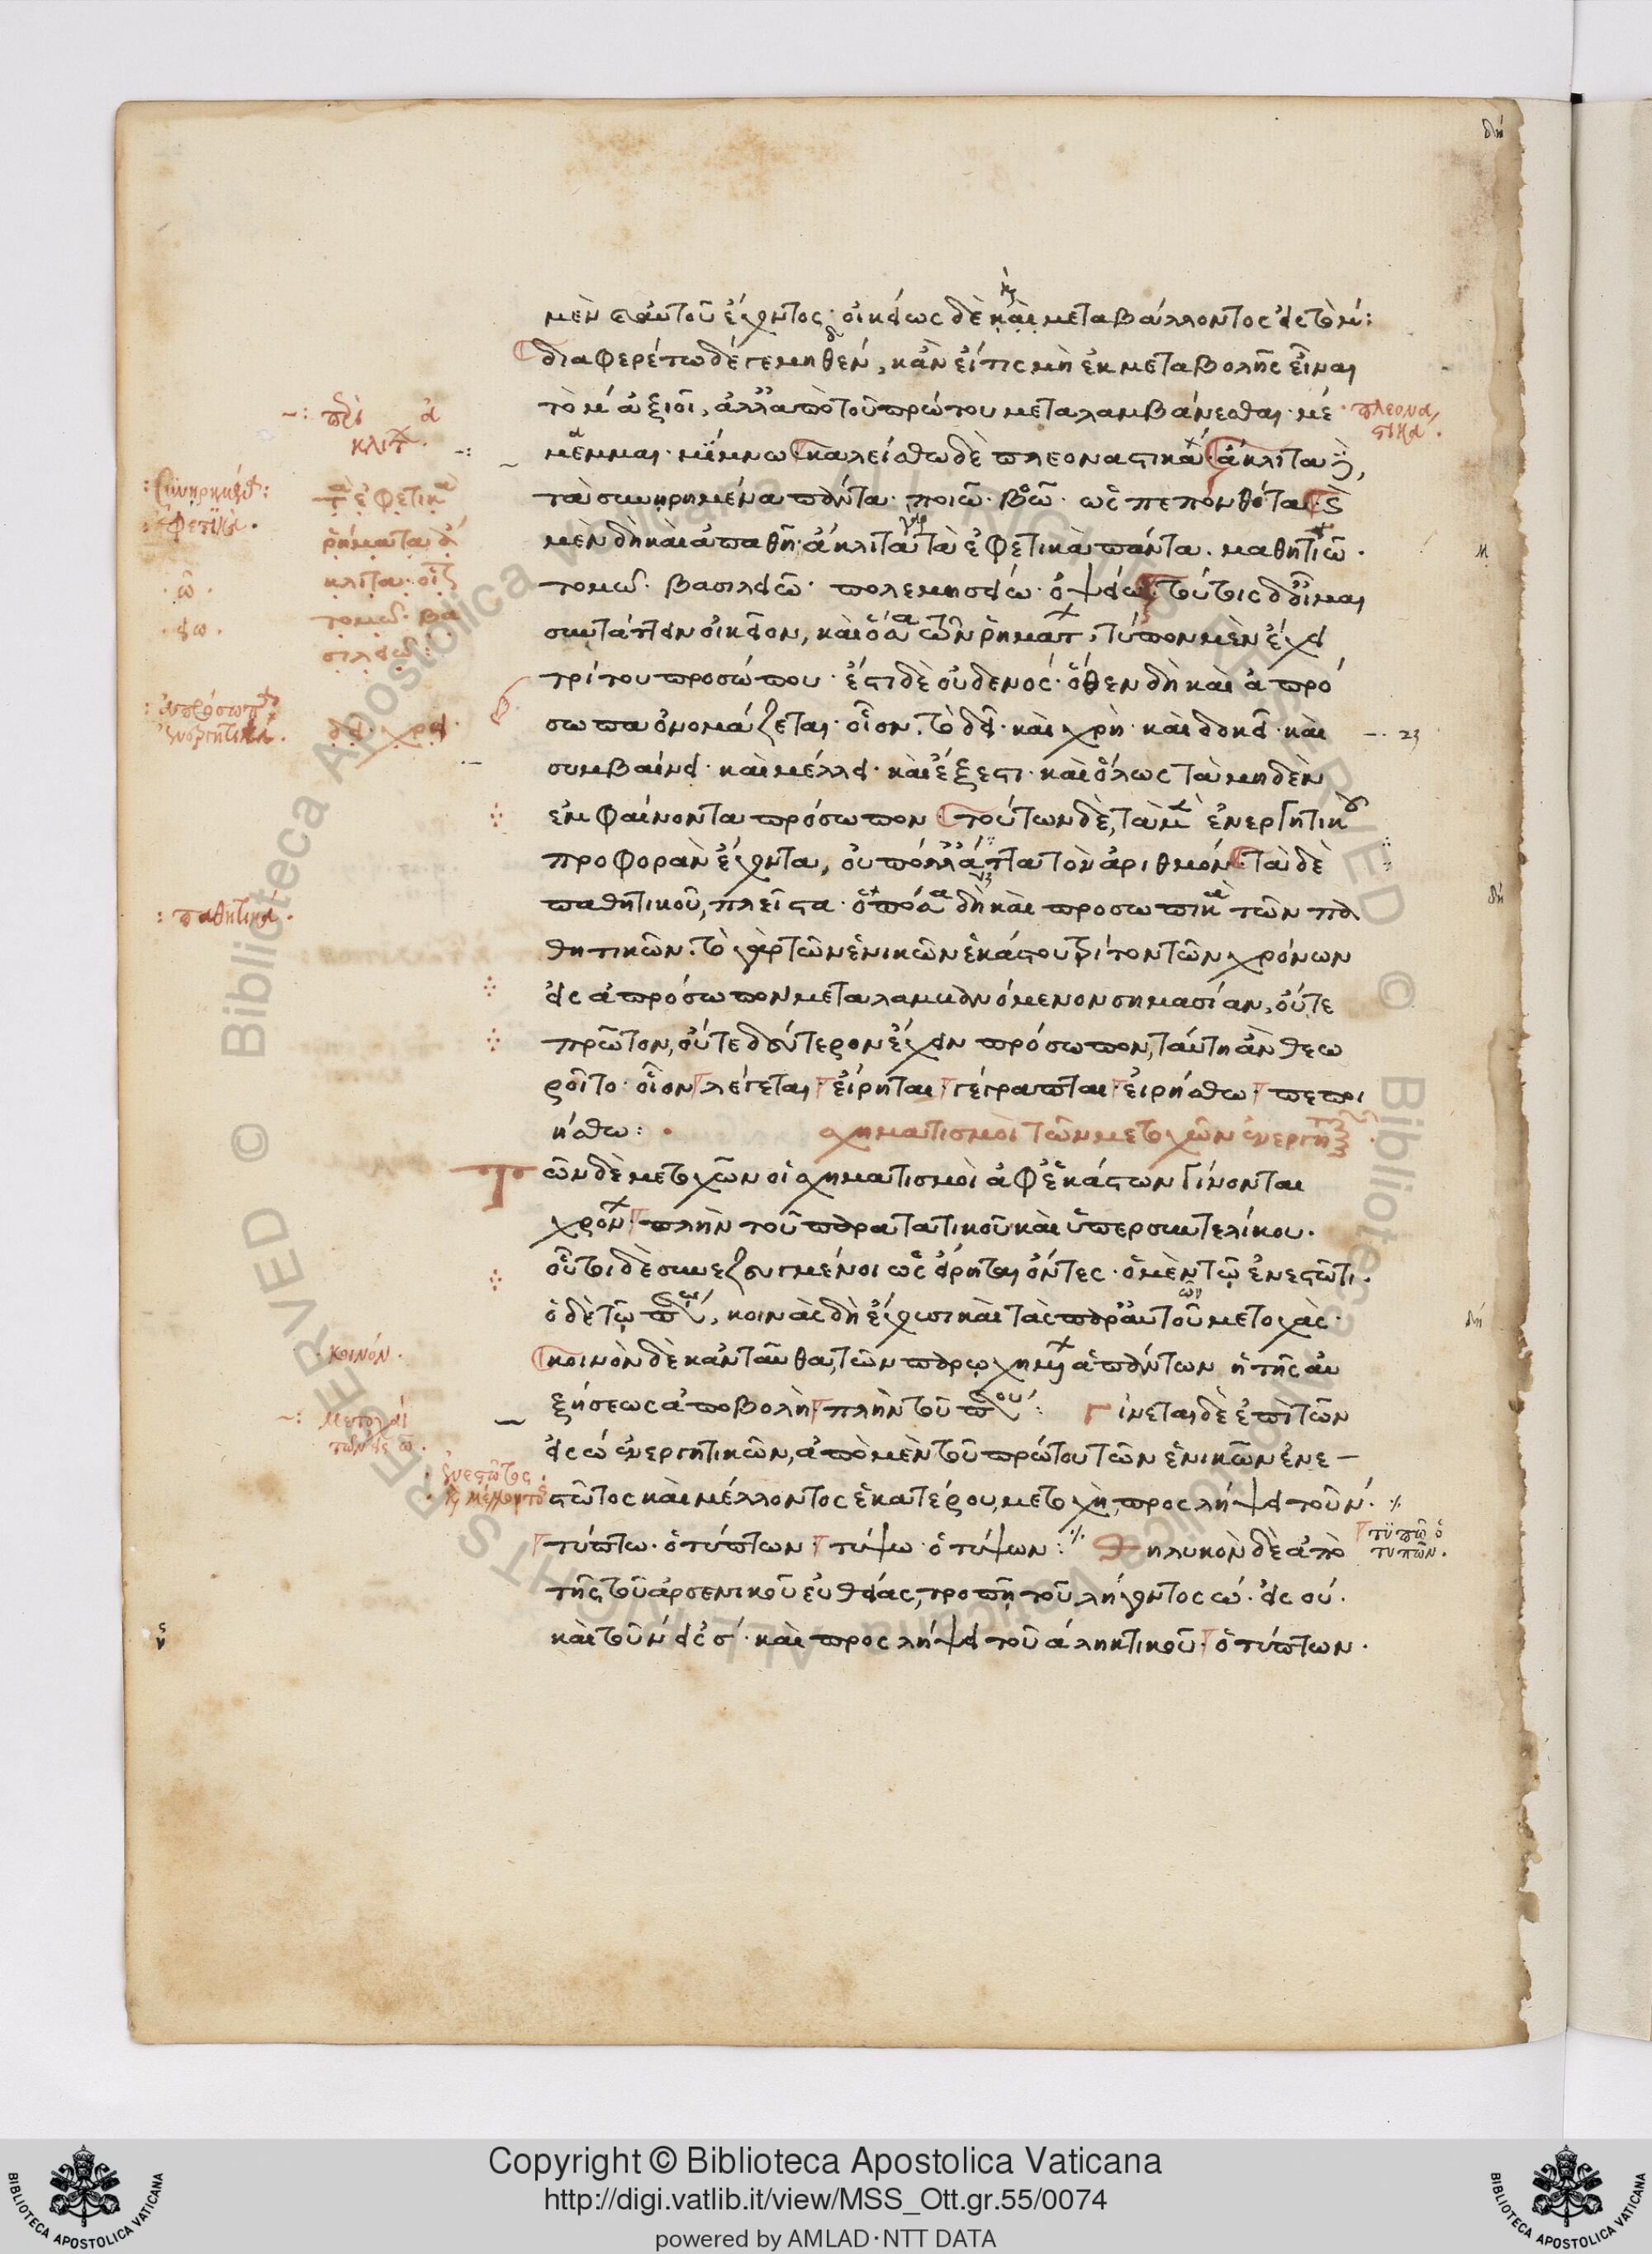 δή
μὲν ἑαυτοῦ ἔχοντος· οἰκείως δὲ καὶ μεταβάλλοντος εἰς τὸ μ:
διαφερέτω δέ γε μηθέν, κἂν εἴ τις μὴ ἐκ μεταβολῆς εἶναι
τὸ μ ἀξιοῖ, ἀλλ' ἀπὸ τοῦ πρώτου μεταλαμβάνεσθαι· μέ
πλεονα
στικά.
μεμμαι· μίμνω καλείσθω δὲ πλεοναστικά· ἄκλιτα
τὰ συνηρημένα πάντα· ποιῶ· βοῶ· ὡς πεπονθότα
μὲν δὴ καὶ ἀπαθῆ· ἄκλιτα τὰ ἐφετικὰ πάντα· μαθητιῶ·
τομῶ· βασιλειῶ· πολεμησείω· ὀψείω τούτοις δ' εἶναι
συντάττειν οἰκεῖον, καὶ ὅσα τῶν ῥημάτων, τύπον μὲν ἔχει
τρίτου προσώπου· ἔστι δὲ οὐδενός· ὅθεν δὴ καὶ ἀπρό
σωπα ὀνομάζεται· οἷον· τὸ δεῖ· καὶ χρή· καὶ δοκεῖ· καὶ
συμβαίνει· καὶ μέλλει· καὶ ἔξεστι· καὶ ὅλως τὰ μηδὲν
ἐμφαίνοντα πρόσωπον τούτων δὲ, τὰ μὲν ἐνεργητικοῦ
προφορὰν ἔχοντα, οὐ πολλάττα τὸν ἀριθμόν· τὰ δὲ
παθητικοῦ, πλεῖστα· ὁπόσα δὴ καὶ προσωπικὰ τῶν πα
θητικῶν. τὸ γὰρ τῶν ἑνικῶν ἑκάστου τρίτον τῶν χρόνων
εἰς ἀπρόσωπον μεταλαμβανόμενον σημασίαν, οὔτε
πρῶτον, οὔτε δεύτερον ἔχειν πρόσωπον, ταύτη ἂν θεω
ροῖτο· οἷον λέγεται· εἴρηται· γέγραπται· εἰρήσθω· πεποι
ήσθω:
σχηματισμοὶ τῶν μετοχῶν ἐνεργη
Τῶν δὲ μετοχῶν οἱ σχηματισμοὶ ἀφ' ἑκάστων γίνονται
χρόνων· πλὴν τοῦ παρατατικοῦ καὶ ὑπερσυντελίκου.
οὗτοι δὲ συνεζευγμένοι ὡς εἴρηται ὄντες· ὁ μὲν τῷ ἐνεστῶτι.
ὁ δὲ τῷ παρακειμένῳ, κοινὰς δὴ ἔχουσι καὶ τὰς παρ' αὐτοῦ μετοχάς·
κοινὸν δὲ κἀνταῦθα, τῶν παρῳχημένων ἁπάντων ἡ τῆς αὐ
ξήσεως ἀποβολὴ πλὴν τοῦ παρακειμένου: Γίνεται δὲ ἐπὶ τῶν
εἰς ω ἐνεργητικῶν, ἀπὸ μὲν τοῦ πρώτου τῶν ἑνικῶν ἐνε
στῶτος καὶ μέλλοντος ἑκατέρου, μετοχὴ, προσλήψει τοῦ ν.
τύπτω· ὁ τύπτων τύψω· ὁ τύψων: Θηλυκὸν δὲ ἀπὸ
τυπῶ ὁ
τυπῶν.
τῆς τοῦ ἀρσενικοῦ εὐθείας, τροπῇ τοῦ λήγοντος ω· εἰς ου.
καὶ τοῦ ν εἰς σ· καὶ προσλήψει τοῦ α ληκτικοῦ· ὁ τύπτων.
ἐφετικὰ
ῥήματα ἄ
κλιτα· οἷον
τομῶ· βα
σιλειῶ:
ἐφετικά.
ῶ.
είω.
δεῖ· χρή
: παθητικά.
κοινόν.
μετοχαὶ
τῶν εἰς ω.
ἐνεστῶτος
καὶ μέλλοντος
Copyright © Biblioteca Apostolica Vaticana
http://digi.vatlib.it/view/MSS_Ott.gr.55/0074
powered by AMLAD · NTT DATA
BIBLIOTECA APOSTOLICA VATICANA
BIBLIOTECA APOSTOLICA VATICANA